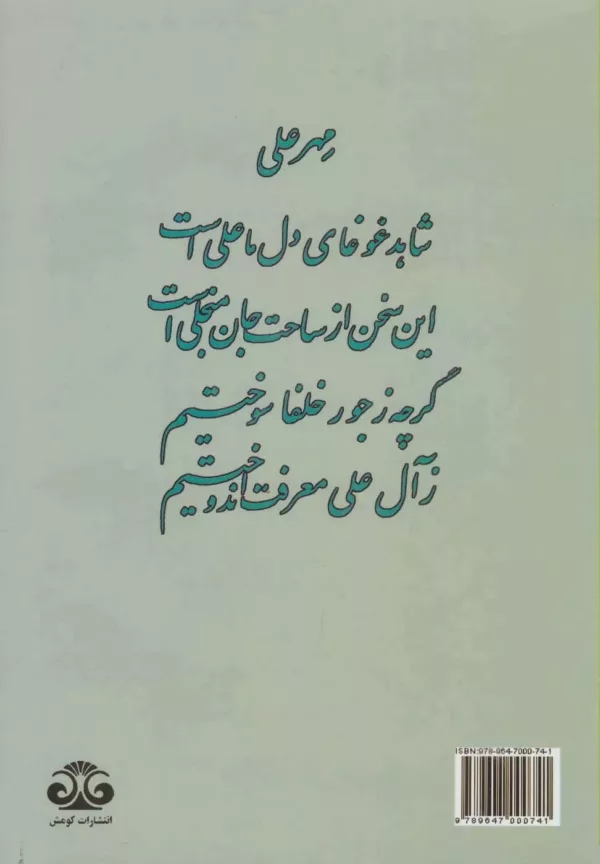 مهر علی
شاهد غوغای دل ما علی است
این سخن از ساحت جان منجلی است
گرچه ز جور خلفا سوختیم
ز آل علی معرفت اندوختیم
ISBN:978-964-7000-74-1
9 789647 000741
انتشارات کومش